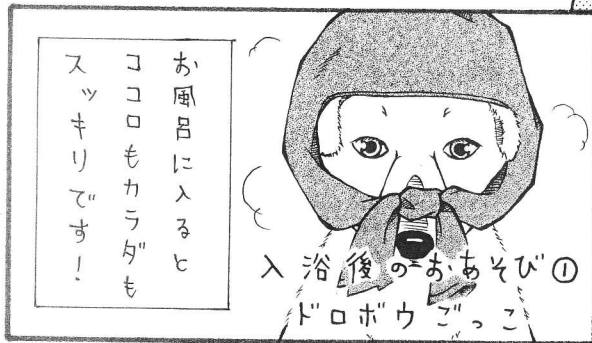 お風呂に入ると
ココロもカラダも
スッキリです！
入浴後のおあそび①
ドロボウごっこ